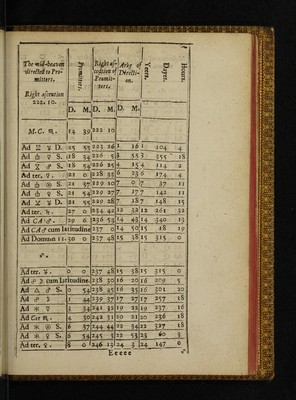 The mid-heaven
directed to Pro-
mittors.
Right ascention
222. 10.
Promittors.
Right as-
cention of
Promit-
tors.
Arks of
Directi-
on.
Yeers.
Dayes.
Hours.
D. M. D. M. D. M.
M.C. ♏. 14 39 222 10
D. 15 55 223 26 1 16 1 104 4
S. 18 54 226 5 3 55 3 355 18
S. 18 54 226 25 4 15 4 114 2
Ad ter. ☿. 21 0 228 33 6 23 6 174 4
S. 21 37 229 10 7 0 7 37 11
S. 21 54 229 27 7 17 7 142 11
D. 21 55 229 28 7 18 7 148 15
Ad ter. ♄. 27 0 234 42 12 32 12 261 32
Ad CA ♂. 29 6 236 53 14 43 14 340 13
Ad CA ♂ cum latitudine 237 0 14 50 15 18 19
Ad Domum 11. 30 0 237 48 15 38 15 315 0
♐.
Ad ter. ♃. 0 0 237 48 15 38 15 315 0
cum latitudine. 238 30 16 20 16 209 5
S. 0 54 238 45 16 35 16 301 20
1 44 239 37 17 27 17 257 18
3 34 241 32 19 22 19 237 16
Ad Cor ♏. 4 30 242 31 20 21 20 236 18
S. 6 37 244 44 22 34 22 327 18
S. 6 54 245 3 22 53 23 60 3
Ad ter. ♀. 8 0 246 13 24 3 24 147 0
Eeeee